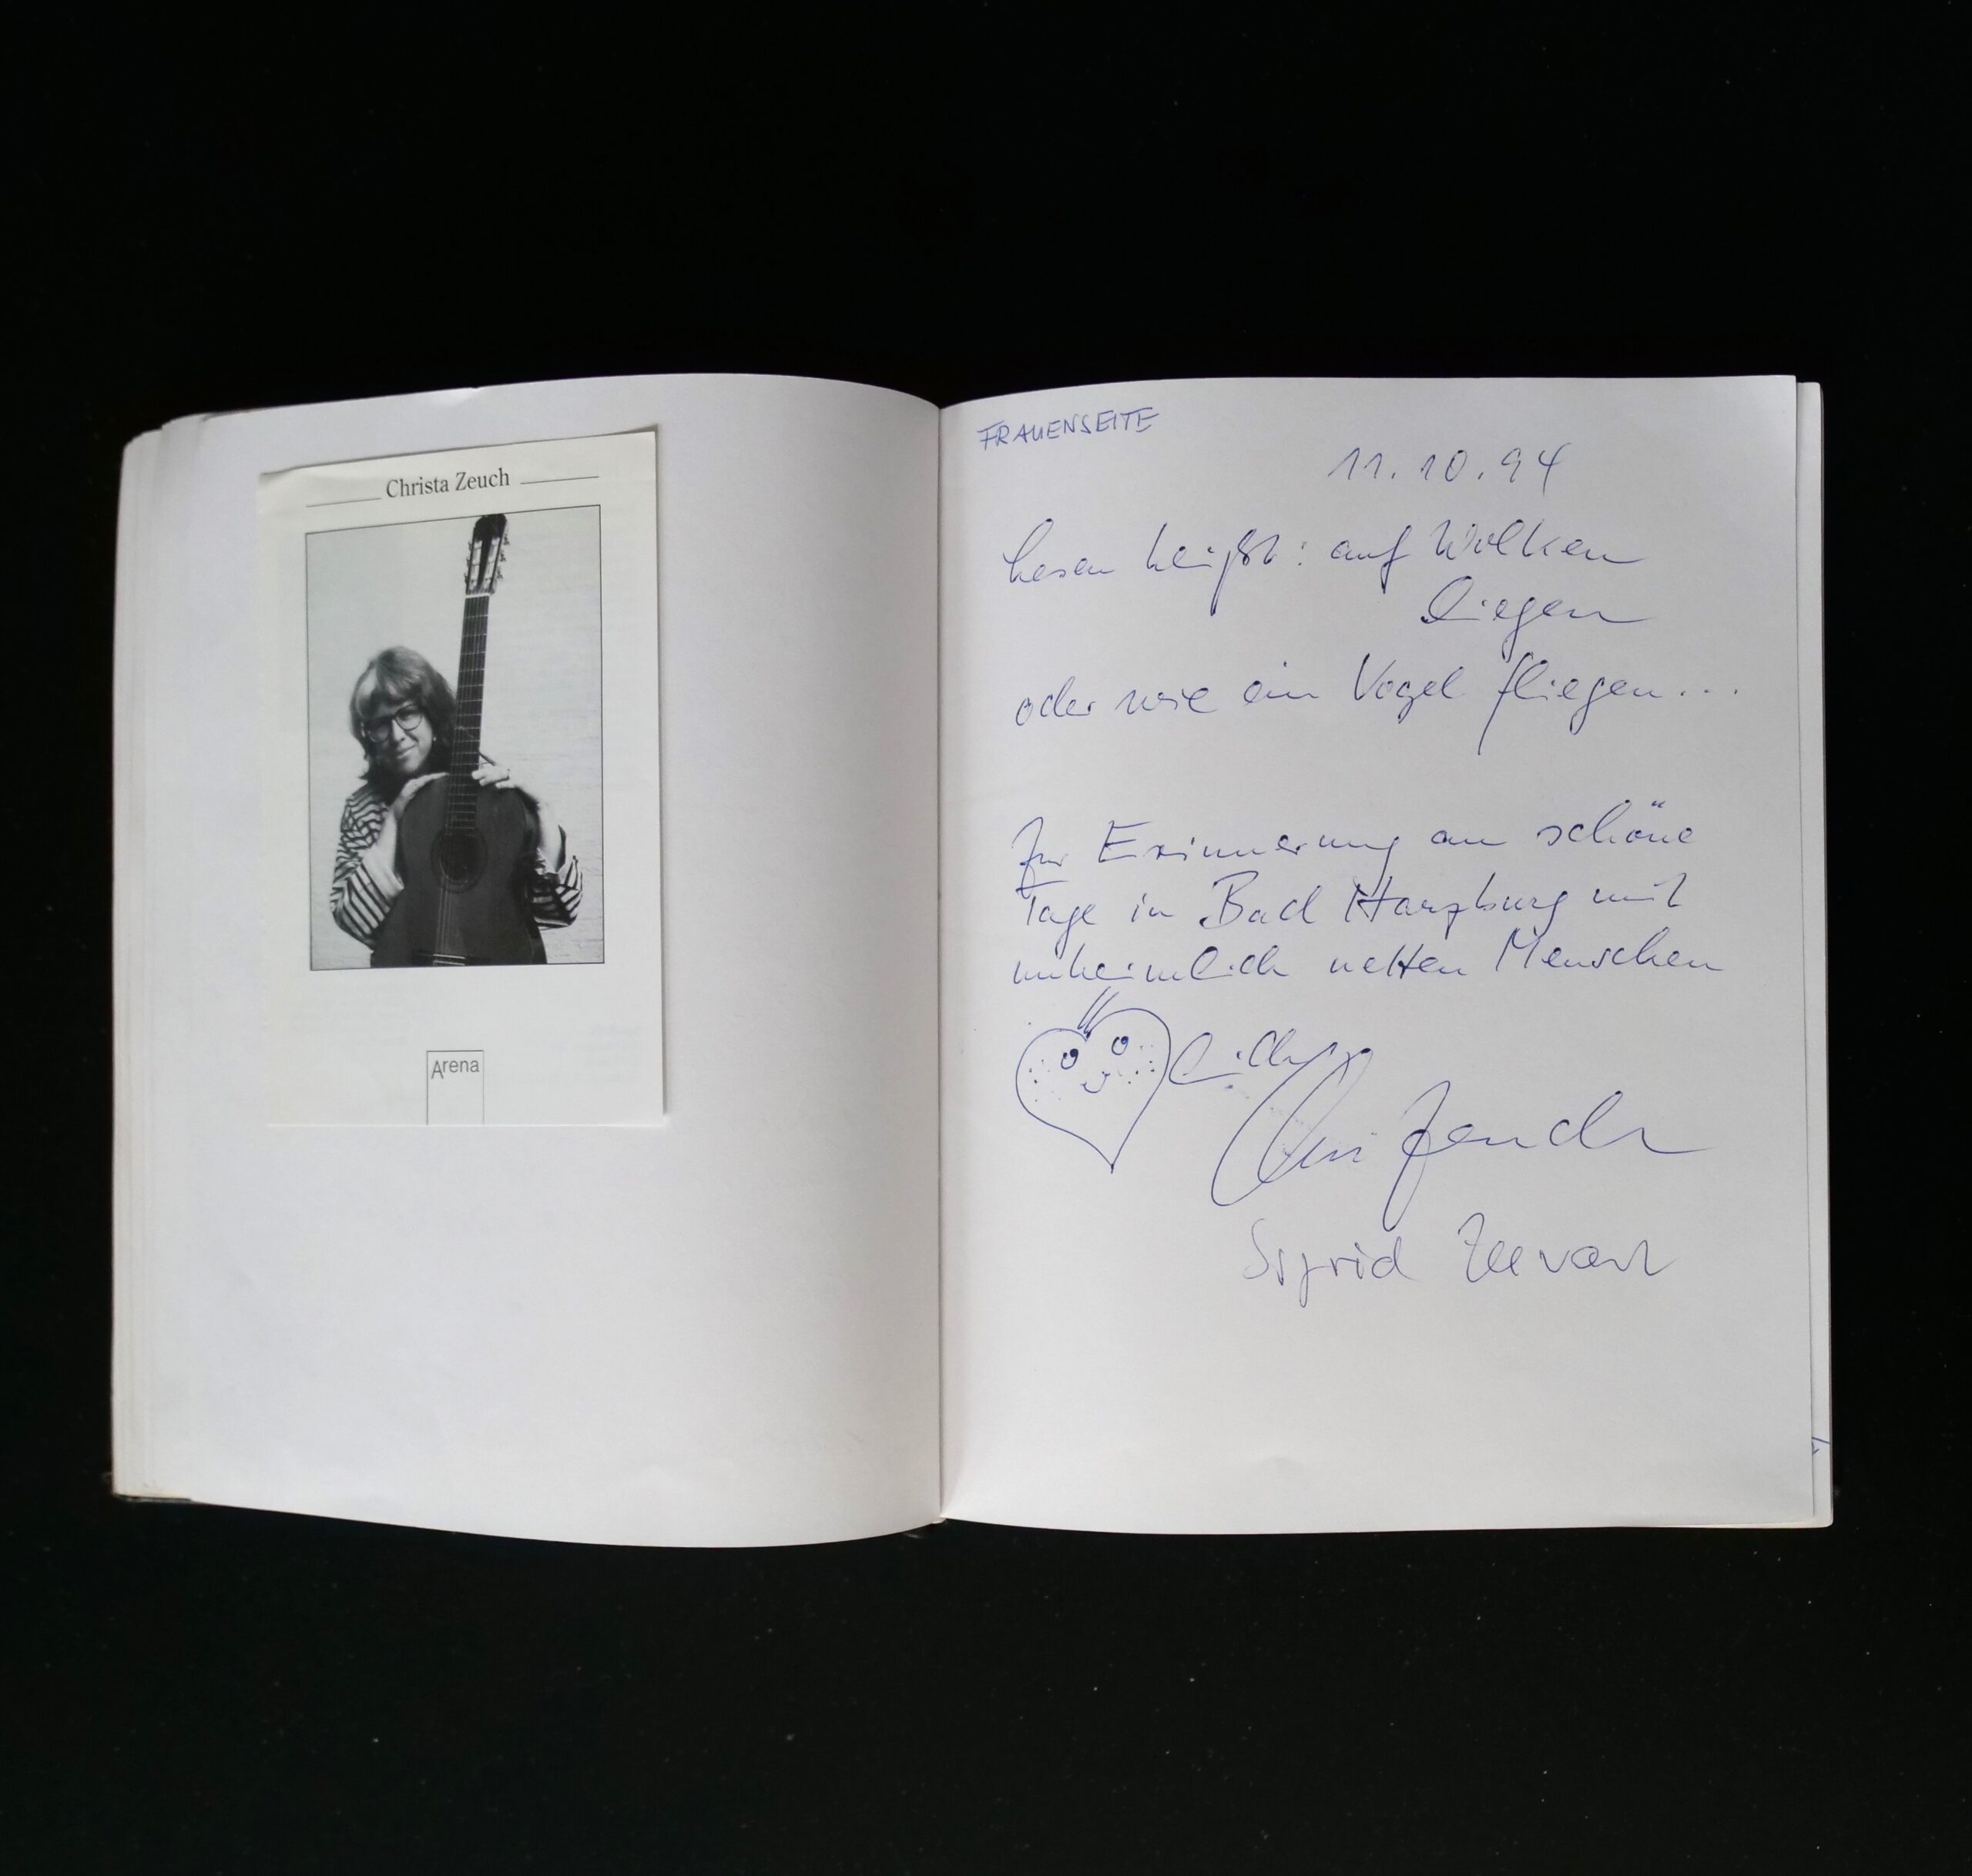 Christa Zeuch
Arena
FRAUENSEITE
11.10.94
Lesen heißt: auf Wolken
liegen
oder wie ein Vogel fliegen...
Zur Erinnerung an schöne
Tage in Bad Harzburg mit
unheimlich netten Menschen
lichst
Zeuch
Sigrid Zeevaert